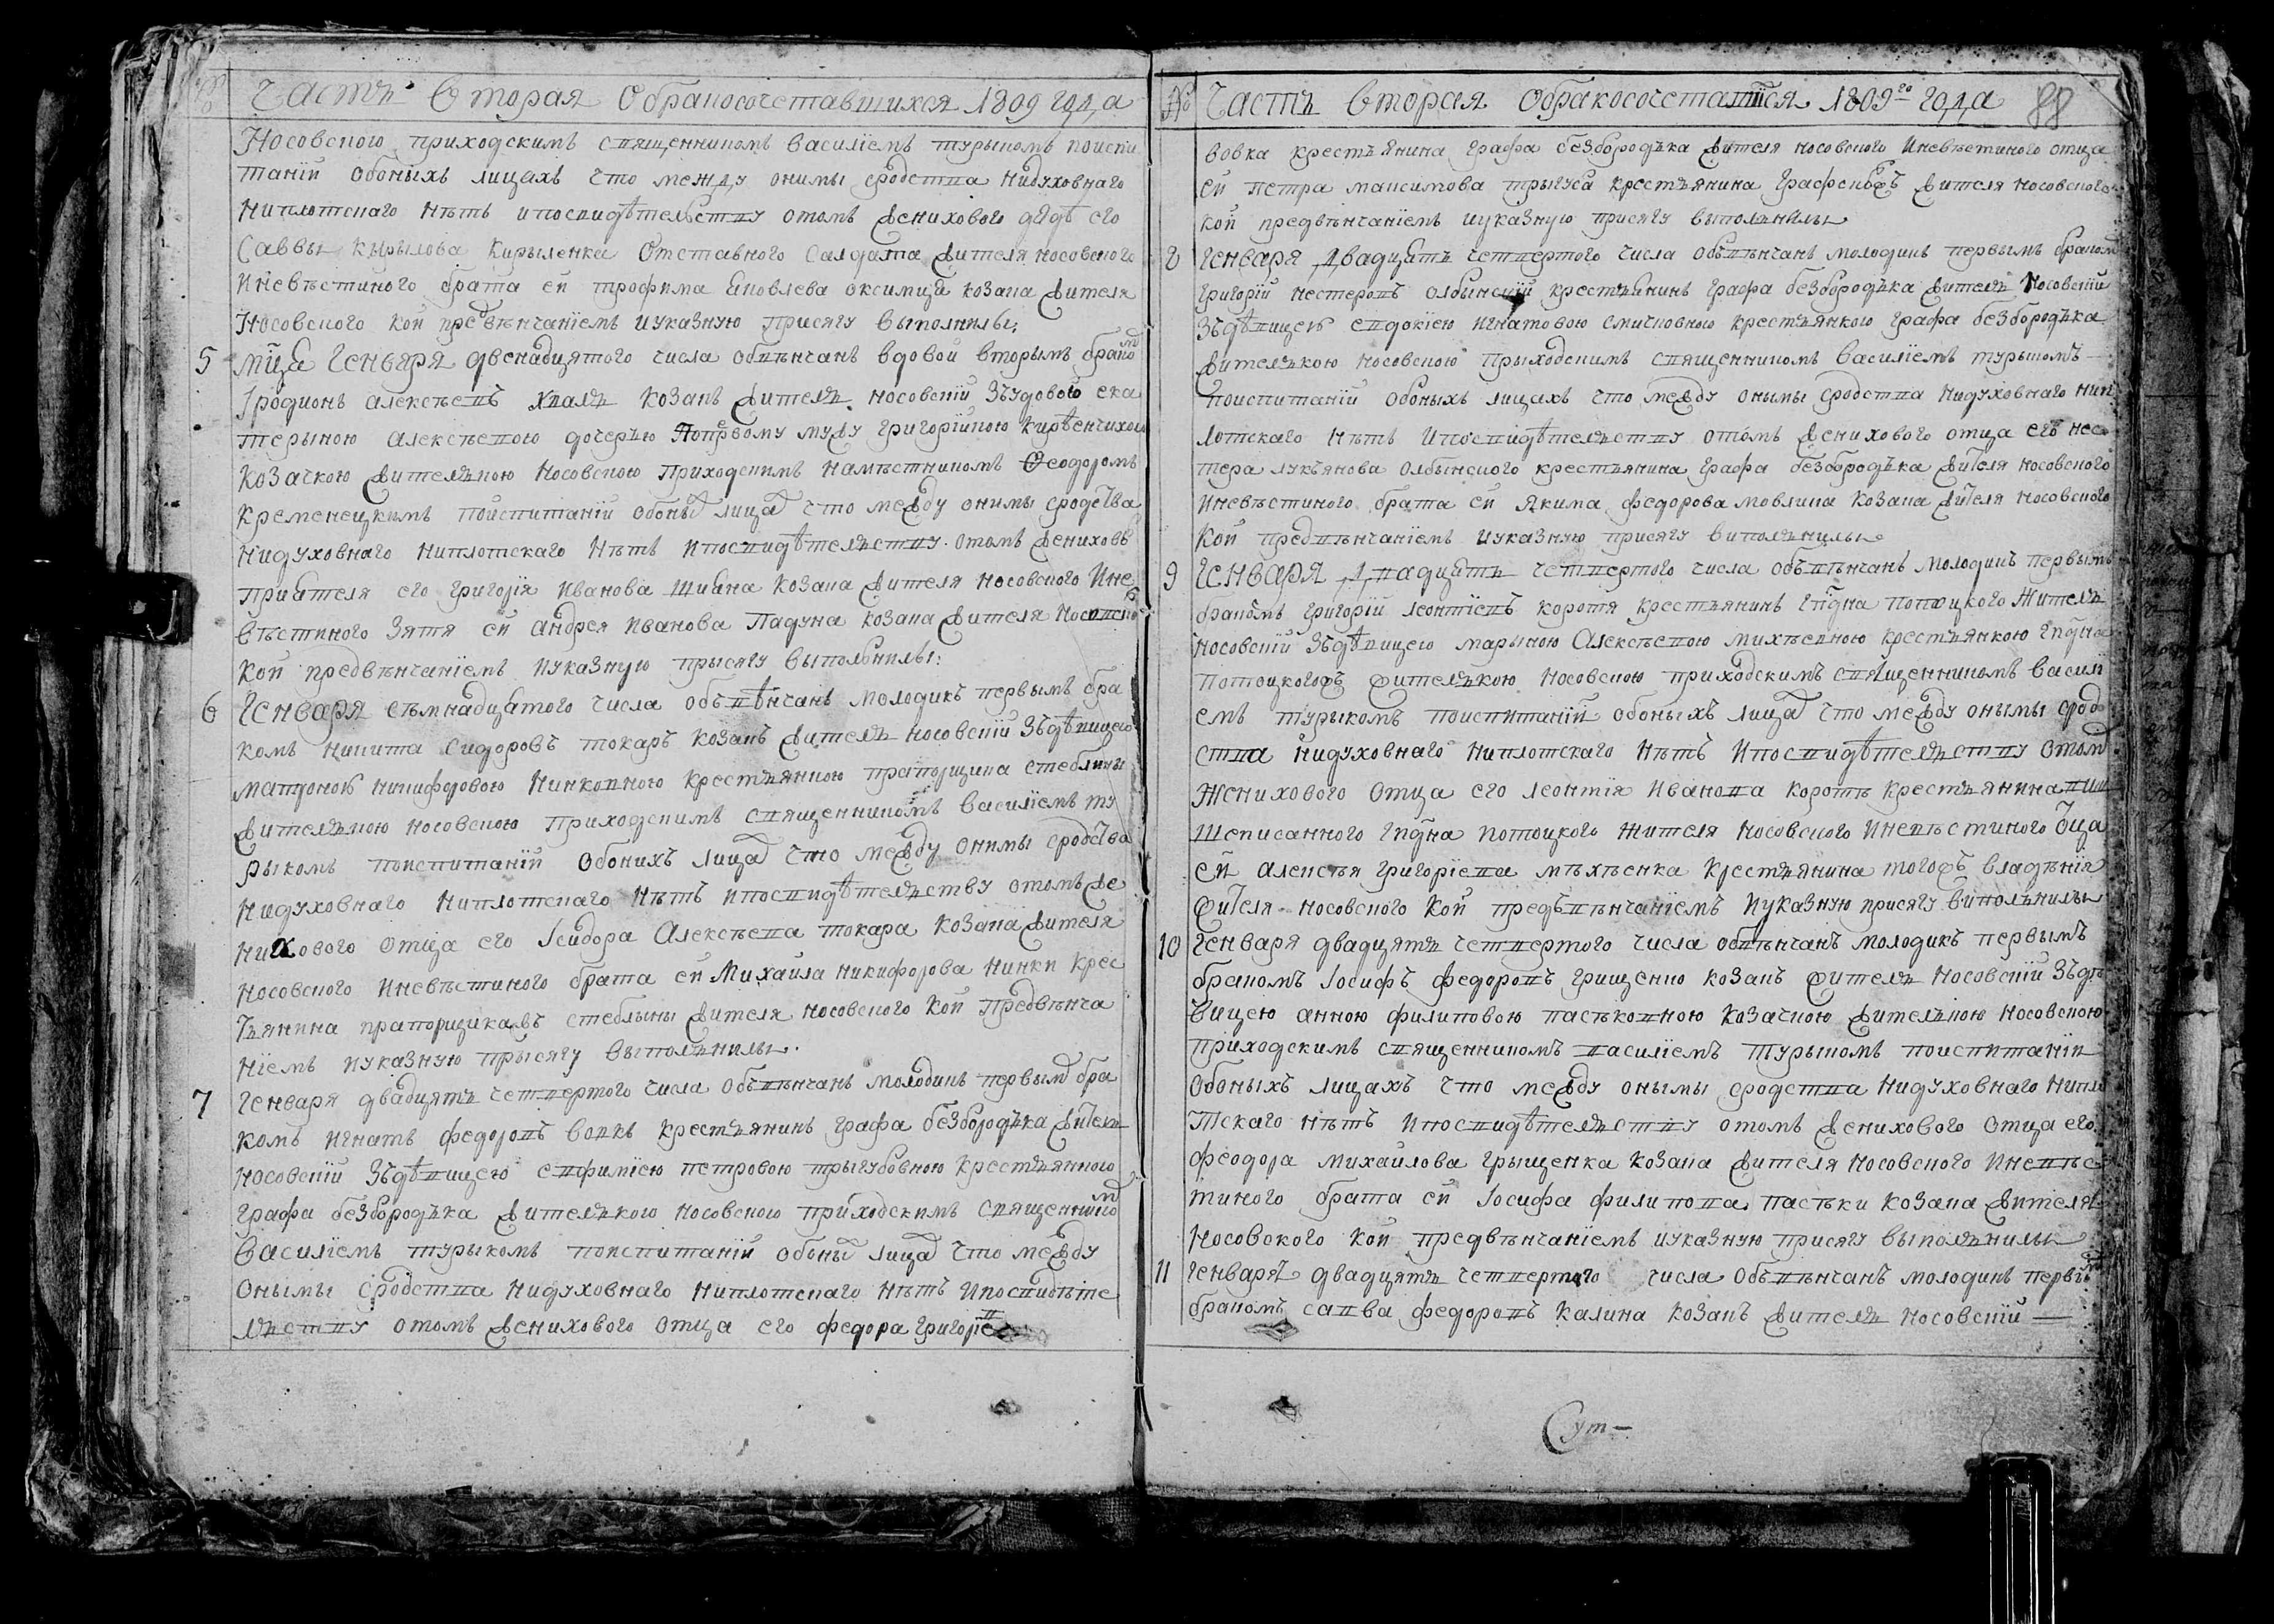 №
Часть Вторая О бракосочетавшихся 1809 года
Носовского приходскимъ священникомъ Василіемъ турыкомъ поиспи
таніи обоныхъ лицахъ что между онимы сродства нидуховнаго
ниплотскаго нѣтъ ипосвидѣтельству отомъ жениховаго дядѣ его
Саввы кырылова Кирыленка Отставного Салдата жителя носовского
Иневѣстиного брата ей трофима Яковлева оксимца козака жителя
Носовского кои предвѣнчаніемъ иуказную присягу выполнилы;
5 мца Генваря двенадцятого числа обвѣнчанъ вдовой вторымъ брако
Іродионъ алексѣевъ хваля козакъ жителъ носовскій Зъудовою ека
терыною алексѣевою дочерью Попервому мужу григорійвою кирѣенчихою
козачкою жителъкою носовскою приходскимъ намѣстникомъ Ѳеодоромъ
кременецкимъ поиспитаніи обоныхъ лицах что между онимы сродства
нидуховнаго ниплотскаго Нѣтъ ипосвидѣтелъству отомъ жениховъ
приятеля его григорія Иванова Шияна козака жителя носовского Ине
вѣстиного зятя ей андрея Иванова Падуна козака жителя Носовско
кои предвѣнчаніемъ иуказную прысягу выполънилы:
6 Генваря сѣмнадцятого числа объвѣнчанъ молодикъ первымъ бра
комъ никита сидоровъ токаръ козакъ жителъ носовскій Зъдѣвицею
матроною никифоровою Нинковною крестъянкою прапорщика стеблины
жителъкою носовскою приходскимъ священникомъ василіемъ ту
рыкомъ поиспитаніи обонихъ лицах что между онимы сродства
нидуховнаго ниплотскаго Нѣтъ ипосвидѣтелъству отомъ же
нихового отца его Ісидора Алексѣева токара козака жителя
носовского иневѣстиного брата ей Михаила никифорова Нинки крес
тъянина прапорщикажъ стеблыны жителя носовского кои предвѣнча
ніемъ иуказную прысягу выполънилы.
7 Генваря двадцятъ четвертого числа объвѣнчанъ молодикъ первым бра
комъ игнатъ федоровъ вовкъ крестъянинъ графа безбородъка жителъ
носовскій Зъдѣвицею евфиміею петровою трыгубовною крестъянкою
графа безбородъка жителъкою носовскою приходскимъ священником
Василіемъ турыкомъ поиспитаніи обоных лицах что между
онымы сродства нидуховнаго ниплотскаго нѣтъ ипосвидѣте
лъству отомъ женихового отца его федора григоріев
№ Часть вторая обракосочетавшихся 1809го года 88
вовка крестъянина графа безбородъка жителя носовского иневѣстиного отца
ей петра максимова трыгуба крестъянина графскогожъ жителя носовского
кои предвѣнчаніемъ иуказную присягу выполънилы
8 Генваря Двадцять четвертого числа объвѣнчанъ молодикъ первымъ браком
григорій нестеровъ олбынскій крестъянинъ графа безбородъка жителъ Носовскій
Зъдѣвицею евдокіею игнатовою смичковною крестъянкою графа безбородъка
жителъкою носовскою прыходскимъ священникомъ василіемъ турыкомъ —
поиспитаніи обоныхъ лицахъ что между онымы сродства нидуховнаго нип
лотскаго Нѣтъ Ипосвидѣтелъству отомъ женихового отца его нес
тера лукъянова олбынского крестъянина графа безбородъка жителя носовского
иневѣстиного брата ей Якима федорова мовлина козака жителя носовского
кои предвѣнчаніемъ иуказную присягу виполънилы
9 Генваря Двадцять четвертого числа объвѣнчанъ молодикъ первымъ
бракомъ григорій леонтіевъ коротя крестъянинъ Гпдна потоцкого Жителъ
носовскій Зъдѣвицею марыною Алексѣевою михѣевною крестъянкою Гпдна
потоцкогожъ жителъкою носовскою приходскимъ священникомъ васили
емъ турыкомъ поиспитаніи обоныхъ лицах что между онымы срод
ства нидуховнаго ниплотскаго Нѣтъ Ипосвидѣтелъству отом
Женихового отца его леонтія Иванова коротѣ крестъянина выи
шеписанного Гпдна потоцкого жителя носовского Иневѣстиного оца
ей алексѣя григоріева мѣхѣенка крестъянина тогожъ владѣнія
жителя носовского кои предъвѣнчаніемъ иуказную присягу виполънилы
10 Генваря двадцятъ четвертого числа объвѣнчанъ молодикъ первымъ
бракомъ Іосифъ федоровъ грищенко козакъ жителъ носовскій Зъдѣ
вицею анною филиповою пастковною козачкою жителъкою носовскою
приходскимъ священникомъ василіемъ турыкомъ поиспитаніи
обоныхъ лицахъ что между онымы сродства нидуховнаго нипло
тскаго нѣтъ ипосвидѣтелъству отомъ женихового отца его
феодора михайлова грыщенка козака жителя носовского Иневѣс
тиного брата ей Іосифа филипова пастьки козака жителя
носовского кои предвѣнчаніемъ иуказную присягу выполънилы
11 Генваря двадцятъ четвертого числа объвѣнчанъ молодикъ первы
бракомъ савва федоровъ калина козакъ жителъ носовскій —